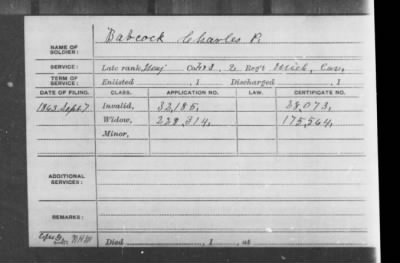 NAME OF SOLDIER: Babcock Charles P.
SERVICE: Late rank, Co. 2 Reg't Mich. Cav.
TERM OF SERVICE: Enlisted , 1 Discharged , 1
DATE OF FILING. CLASS. APPLICATION NO. LAW. CERTIFICATE NO.
1863 Sept. 7 Invalid, 32,185, 28,073,
Widow, 228,314, 175,564,
Minor,
ADDITIONAL SERVICES:
REMARKS:
Died , 1 , at